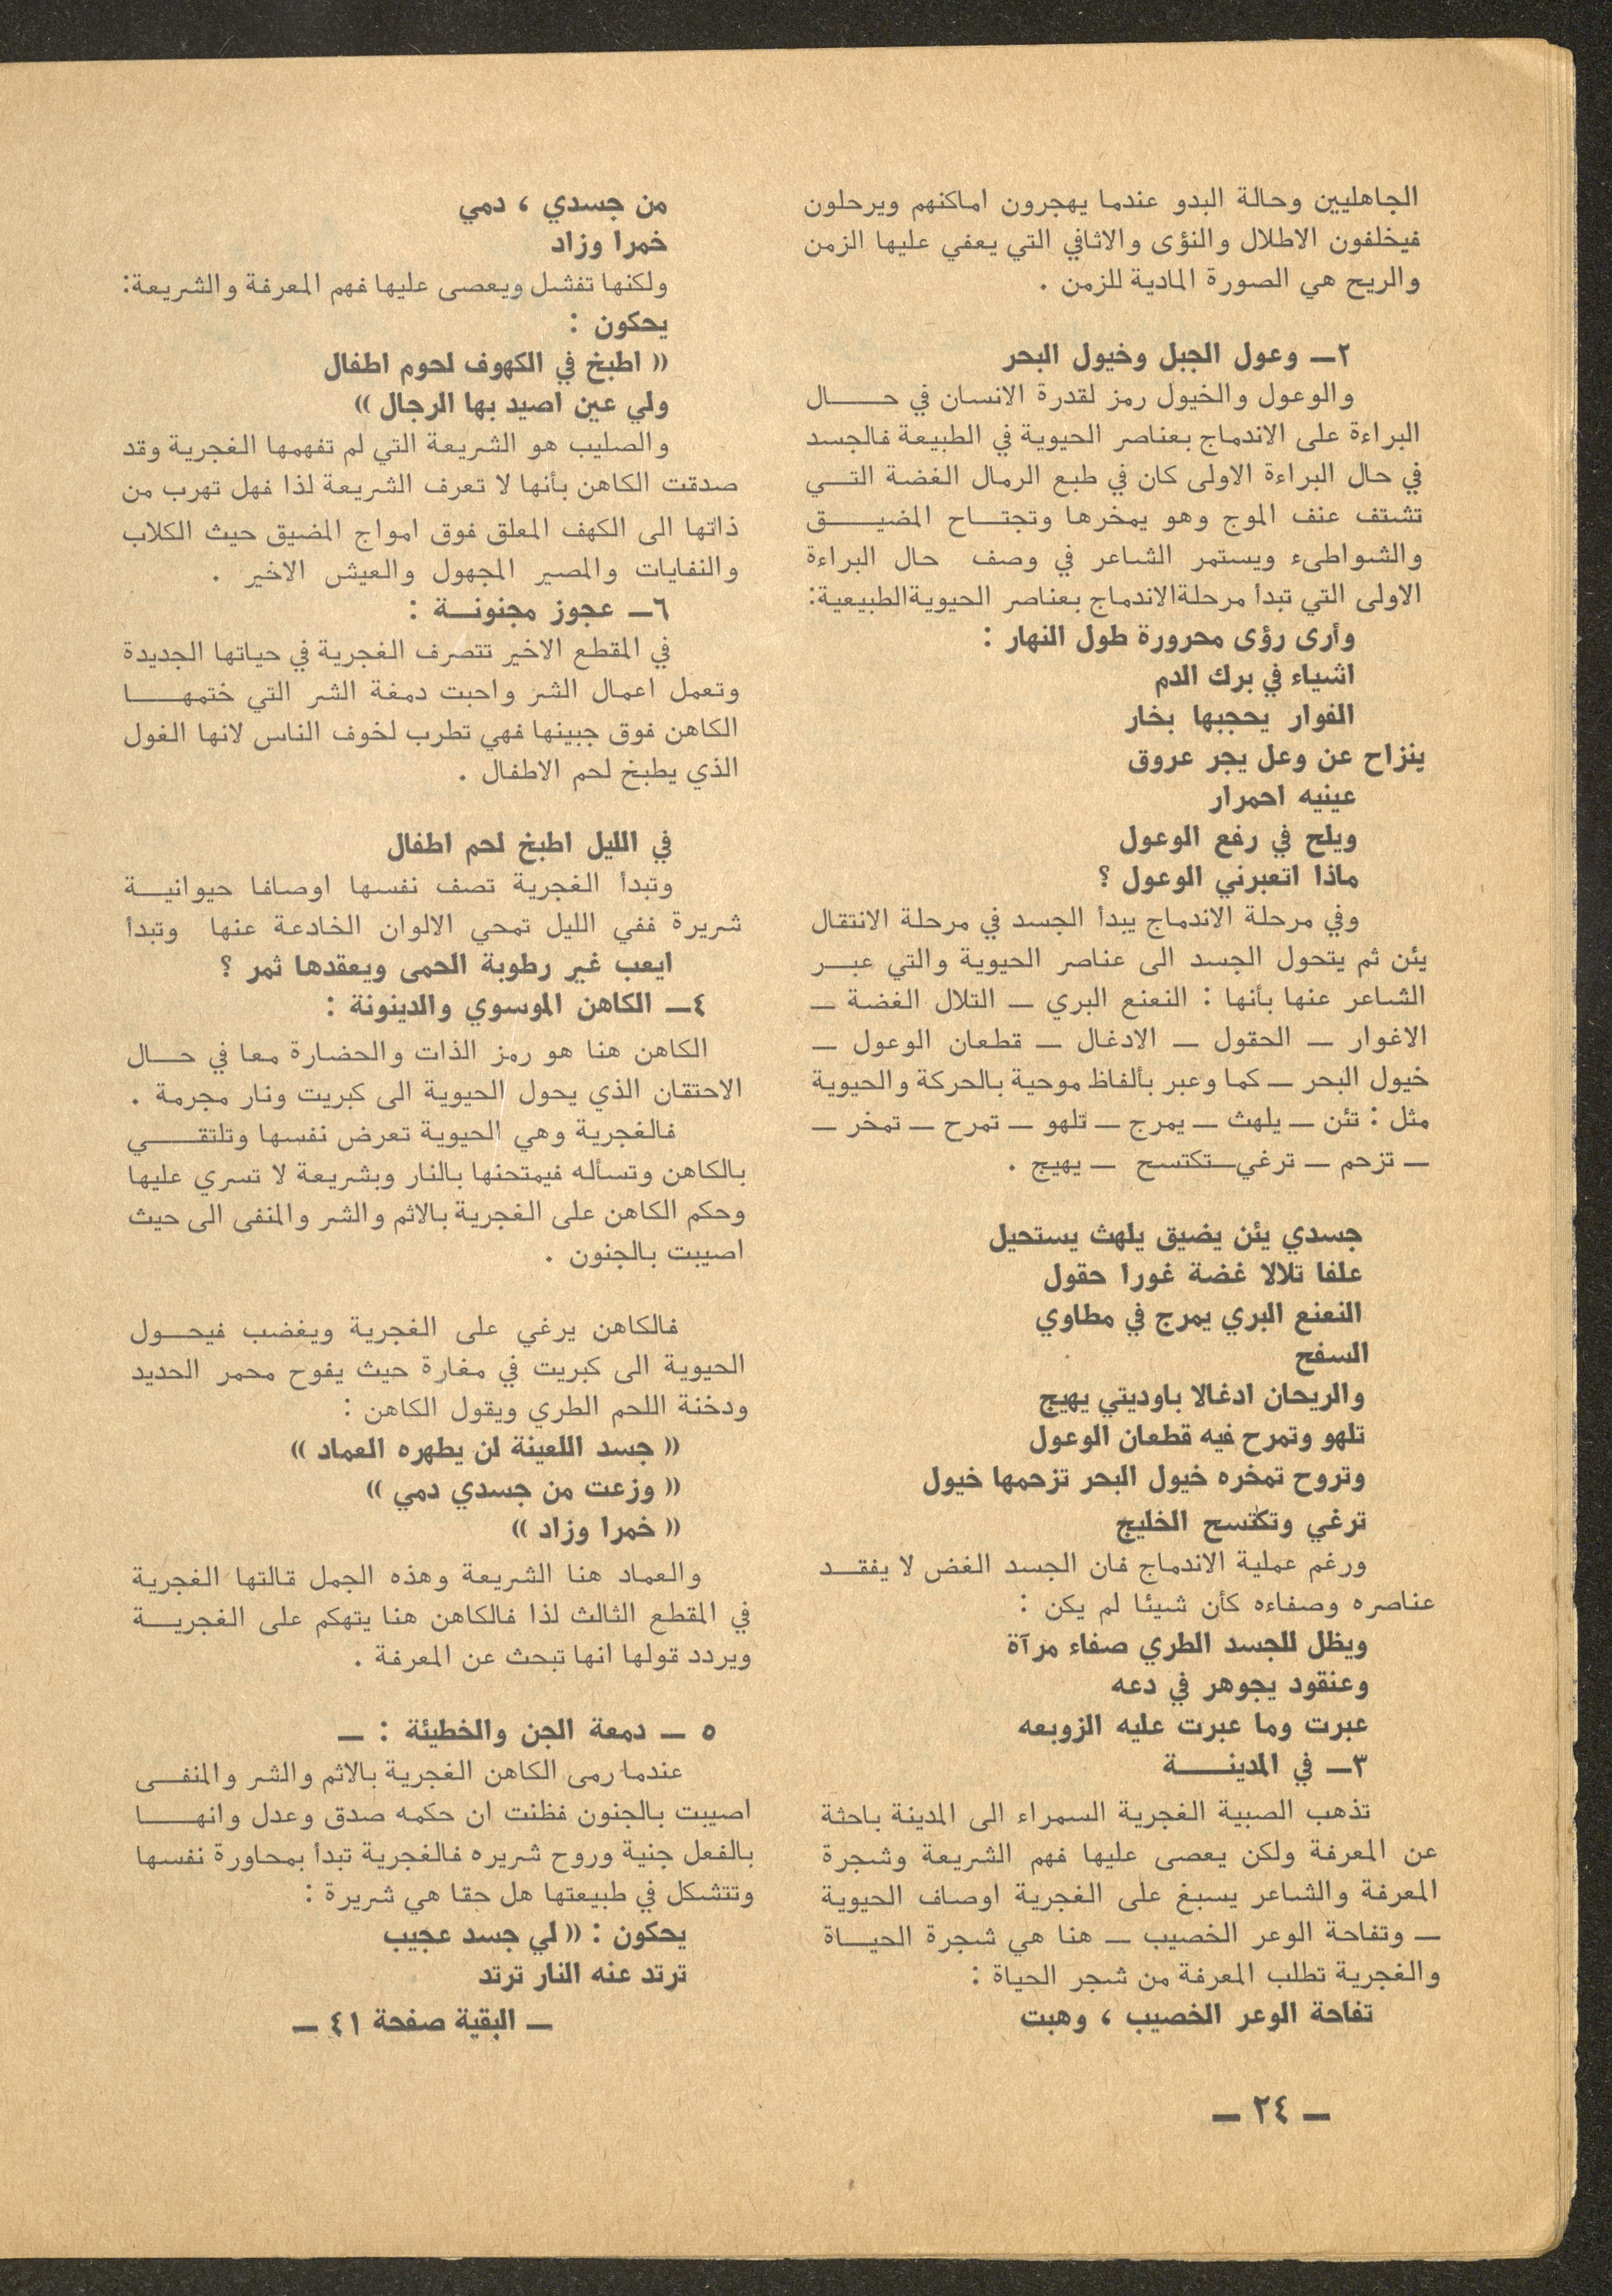 الجاهليين وحالة البدو عندما يهجرون اماكنهم ويرحلون
فيخلفون الاطلال والنؤى والاثافي التي يعفي عليها الزمن
والريح هي الصورة المادية للزمن .
٢ـ وعول الجبل وخيول البحر
والوعول والخيول رمز لقدرة الانسان في حـــال
البراءة على الاندماج بعناصر الحيوية في الطبيعة فالجسد
في حال البراءة الاولى كان في طبع الرمال الغضة التـــي
تشتف عنف الموج وهو يمخرها وتجتـــاح المضيـــق
والشواطىء ويستمر الشاعر في وصف حال البراءة
الاولى التي تبدأ مرحلةالاندماج بعناصر الحيويةالطبيعية:
وأرى رؤى محرورة طول النهار :
اشياء في برك الدم
الفوار يحجبها بخار
ينزاح عن وعل يجر عروق
عينيه احمرار
ويلح في رفع الوعول
ماذا اتعبرني الوعول ؟
وفي مرحلة الاندماج يبدأ الجسد في مرحلة الانتقال
يئن ثم يتحول الجسد الى عناصر الحيوية والتي عبـــر
الشاعر عنها بأنها : النعنع البري ـ التلال الغضة ـ
الاغوار ـ الحقول ـ الادغال ـ قطعان الوعول ـ
خيول البحر ـ كما وعبر بألفاظ موحية بالحركة والحيوية
مثل : تئن ـ يلهث ـ يمرج ـ تلهو ـ تمرح ـ تمخر ـ
ـ تزحم ـ ترغي ـ تكتسح ـ يهيج .
جسدي يئن يضيق يلهث يستحيل
علفا تلالا غضة غورا حقول
النعنع البري يمرج في مطاوي
السفح
والريحان ادغالا باوديتي يهيج
تلهو وتمرح فيه قطعان الوعول
وتروح تمخره خيول البحر تزحمها خيول
ترغي وتكتسح الخليج
ورغم عملية الاندماج فان الجسد الغض لا يفقـــد
عناصره وصفاءه كأن شيئا لم يكن :
ويظل للجسد الطري صفاء مرآة
وعنقود يجوهر في دعه
عبرت وما عبرت عليه الزوبعه
٣ـ في المدينـــة
تذهب الصبية الغجرية السمراء الى المدينة باحثة
عن المعرفة ولكن يعصى عليها فهم الشريعة وشجرة
المعرفة والشاعر يسبغ على الغجرية اوصاف الحيوية
ـ وتفاحة الوعر الخصيب ـ هنا هي شجرة الحيـــاة
والغجرية تطلب المعرفة من شجر الحياة :
تفاحة الوعر الخصيب ، وهبت
من جسدي ، دمي
خمرا وزاد
ولكنها تفشل ويعصى عليها فهم المعرفة والشريعة:
يحكون :
« اطبخ في الكهوف لحوم اطفال
ولي عين اصيد بها الرجال »
والصليب هو الشريعة التي لم تفهمها الغجرية وقد
صدقت الكاهن بأنها لا تعرف الشريعة لذا فهل تهرب من
ذاتها الى الكهف المعلق فوق امواج المضيق حيث الكلاب
والنفايات والمصير المجهول والعيش الاخير .
٦ـ عجوز مجنونـــة :
في المقطع الاخير تتصرف الغجرية في حياتها الجديدة
وتعمل اعمال الشر واحبت دمغة الشر التي ختمهـــا
الكاهن فوق جبينها فهي تطرب لخوف الناس لانها الغول
الذي يطبخ لحم الاطفال .
في الليل اطبخ لحم اطفال
وتبدأ الغجرية تصف نفسها اوصافا حيوانيـــة
شريرة ففي الليل تمحي الالوان الخادعة عنها وتبدأ
ايعب غير رطوبة الحمى ويعقدها ثمر ؟
٤ـ الكاهن الموسوي والدينونة :
الكاهن هنا هو رمز الذات والحضارة معا في حـــال
الاحتقان الذي يحول الحيوية الى كبريت ونار مجرمة .
فالغجرية وهي الحيوية تعرض نفسها وتلتقـــي
بالكاهن وتسأله فيمتحنها بالنار وبشريعة لا تسري عليها
وحكم الكاهن على الغجرية بالاثم والشر والمنفى الى حيث
اصيبت بالجنون .
فالكاهن يرغي على الغجرية ويغضب فيحـــول
الحيوية الى كبريت في مغارة حيث يفوح محمر الحديد
ودخنة اللحم الطري ويقول الكاهن :
« جسد اللعينة لن يطهره العماد »
« وزعت من جسدي دمي »
« خمرا وزاد »
والعماد هنا الشريعة وهذه الجمل قالتها الغجرية
في المقطع الثالث لذا فالكاهن هنا يتهكم على الغجريـــة
ويردد قولها انها تبحث عن المعرفة .
٥ ـ دمعة الجن والخطيئة : ـ
عندما رمى الكاهن الغجرية بالاثم والشر والمنفـــى
اصيبت بالجنون فظنت ان حكمه صدق وعدل وانهـــا
بالفعل جنية وروح شريره فالغجرية تبدأ بمحاورة نفسها
وتتشكل في طبيعتها هل حقا هي شريرة :
يحكون : « لي جسد عجيب
ترتد عنه النار ترتد
ـ البقية صفحة ٤١ ـ
ـ ٢٤ ـ